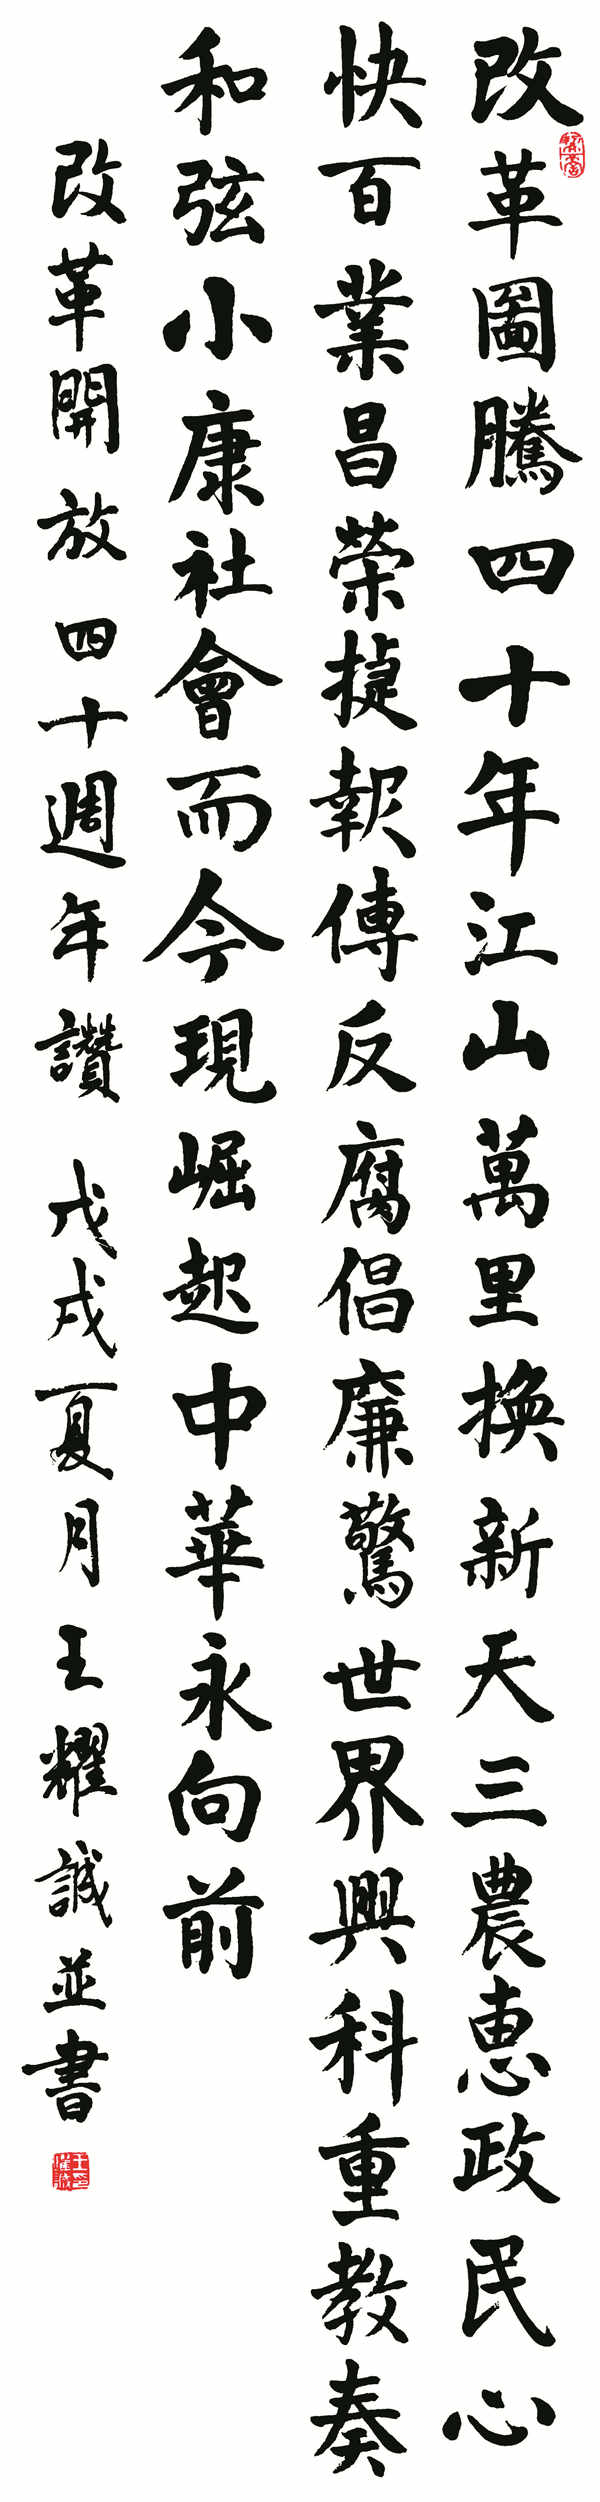 改革圖騰四十年江山萬里換新天三農惠政民心
快百業昌榮捷報傳反腐倡廉驚世界興科重教奏
和弦小康社會而今現崛起中華永向前
改革開放四十週年讚戊戌夏月王耀誠並書